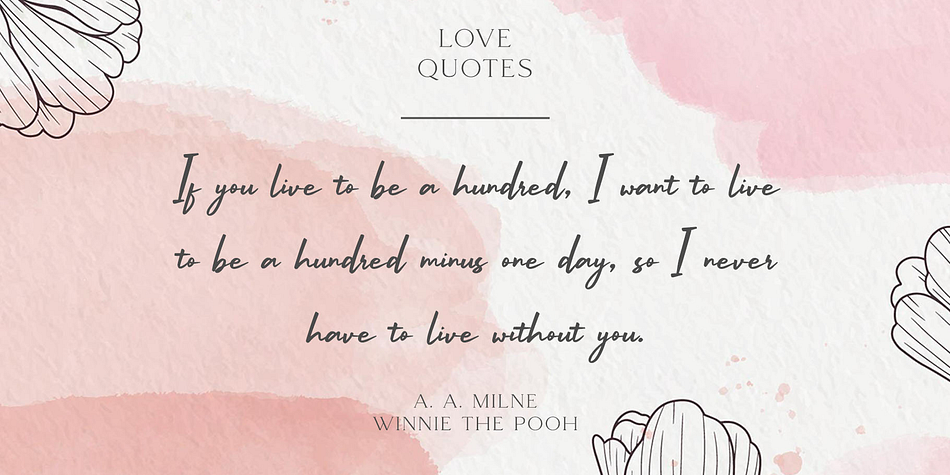 LOVE
QUOTES
If you live to be a hundred, I want to live
to be a hundred minus one day, so I never
have to live without you.
A. A. MILNE
WINNIE THE POOH